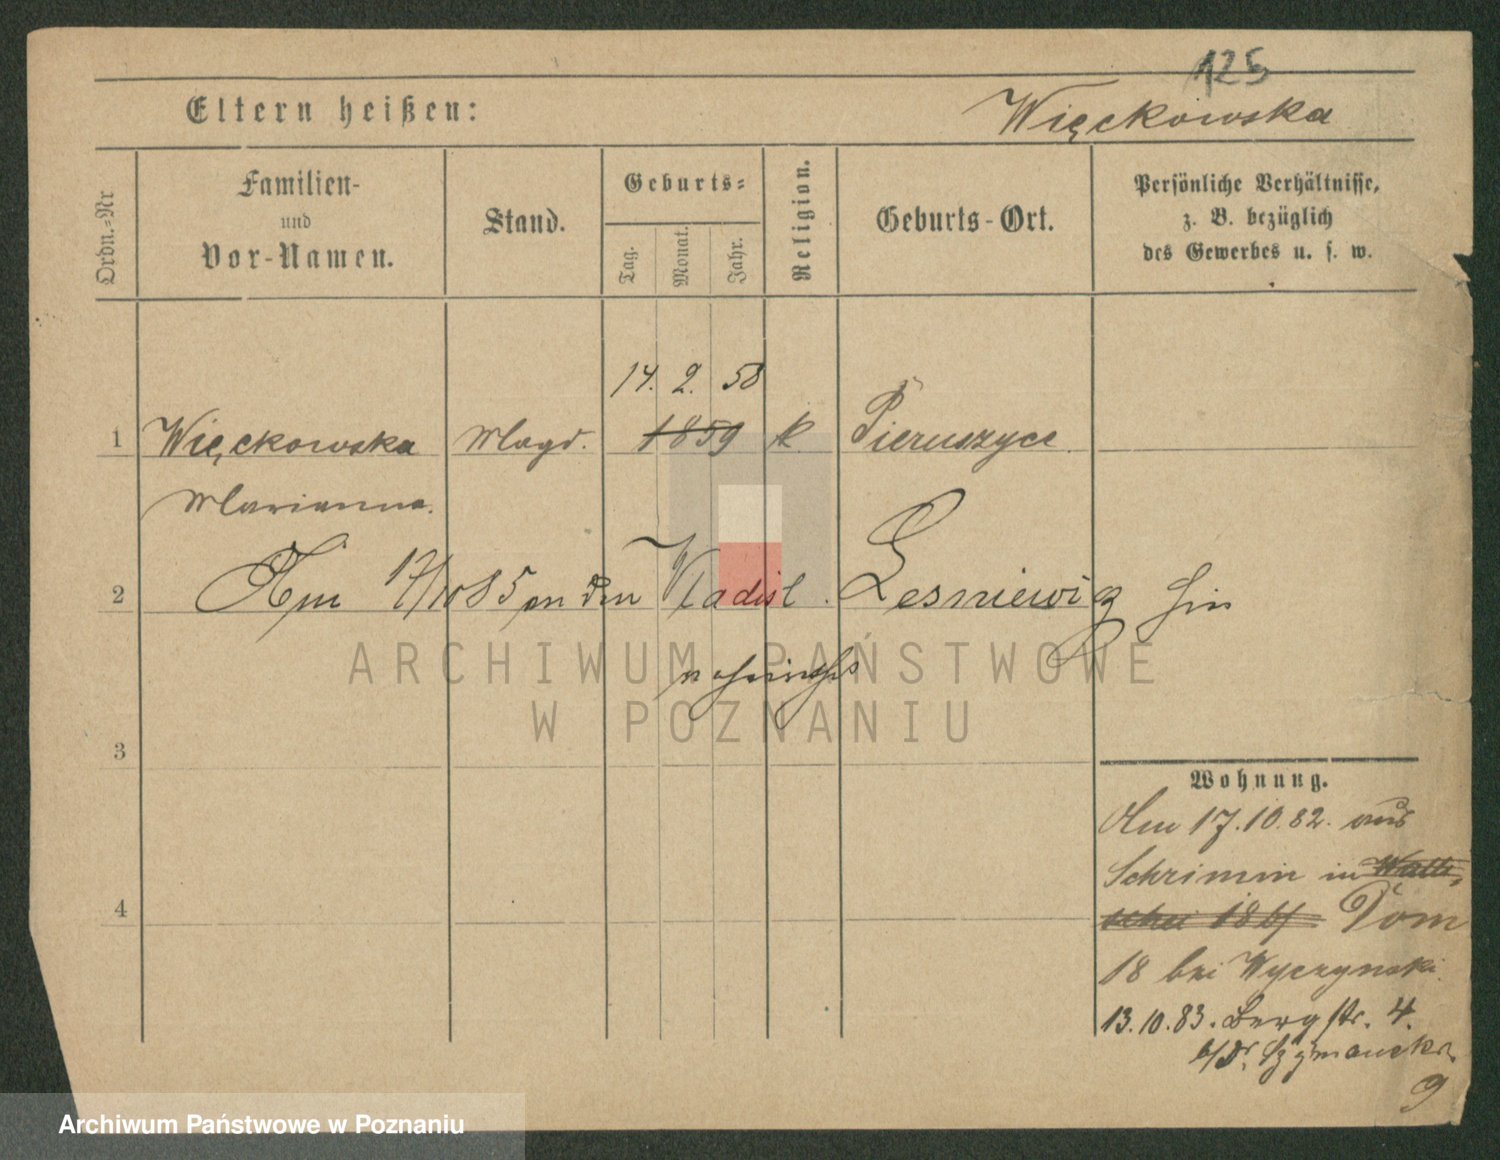 125
Eltern heißen:
Więckowska
Ordn.-Nr
Familien-
und
Vor-Namen.
Stand.
Geburts-
Tag.
Monat.
Jahr.
Religion.
Geburts-Ort.
Persönliche Verhältnisse,
z. B. bezüglich
des Gewerbes u. s. w.
14. 2. 58
1 Więckowska Magd. 1859 k. Pieruszyce.
Marianna.
2 Am 17/10 85 an den Vladisl. Lesniewicz hier
ARCHIWUM PAŃSTWOWE
W POZNANIU
3
4
Wohnung.
Am 17.10.82. aus
Schrimm in Walli-
schei 18 Dom
18 bei Wyczynski.
13.10.83. Bergstr. 4.
b/Dr.
9
Archiwum Państwowe w Poznaniu